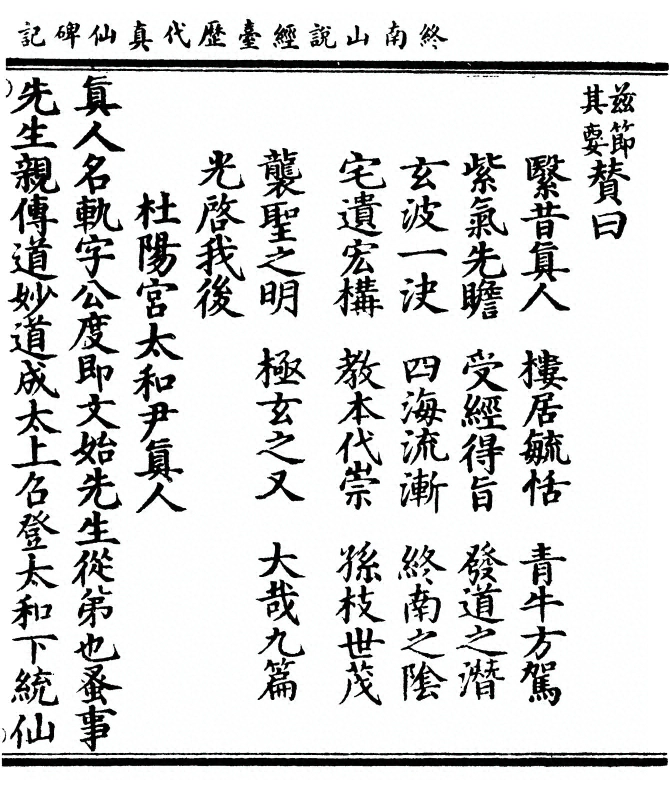 終南山說經臺歷代真仙碑記
茲節
其要
贊曰
繄昔眞人 樓居毓恬 青牛方駕
紫氣先瞻 受經得旨 發道之潛
玄波一決 四海流漸 終南之陰
宅遺宏構 教本代崇 孫枝世茂
襲聖之明 極玄之又 大哉九篇
光啓我後
杜陽宮太和尹眞人
眞人名軌字公度即文始先生從弟也蚤事
先生親傳道妙道成太上召登太和下統仙